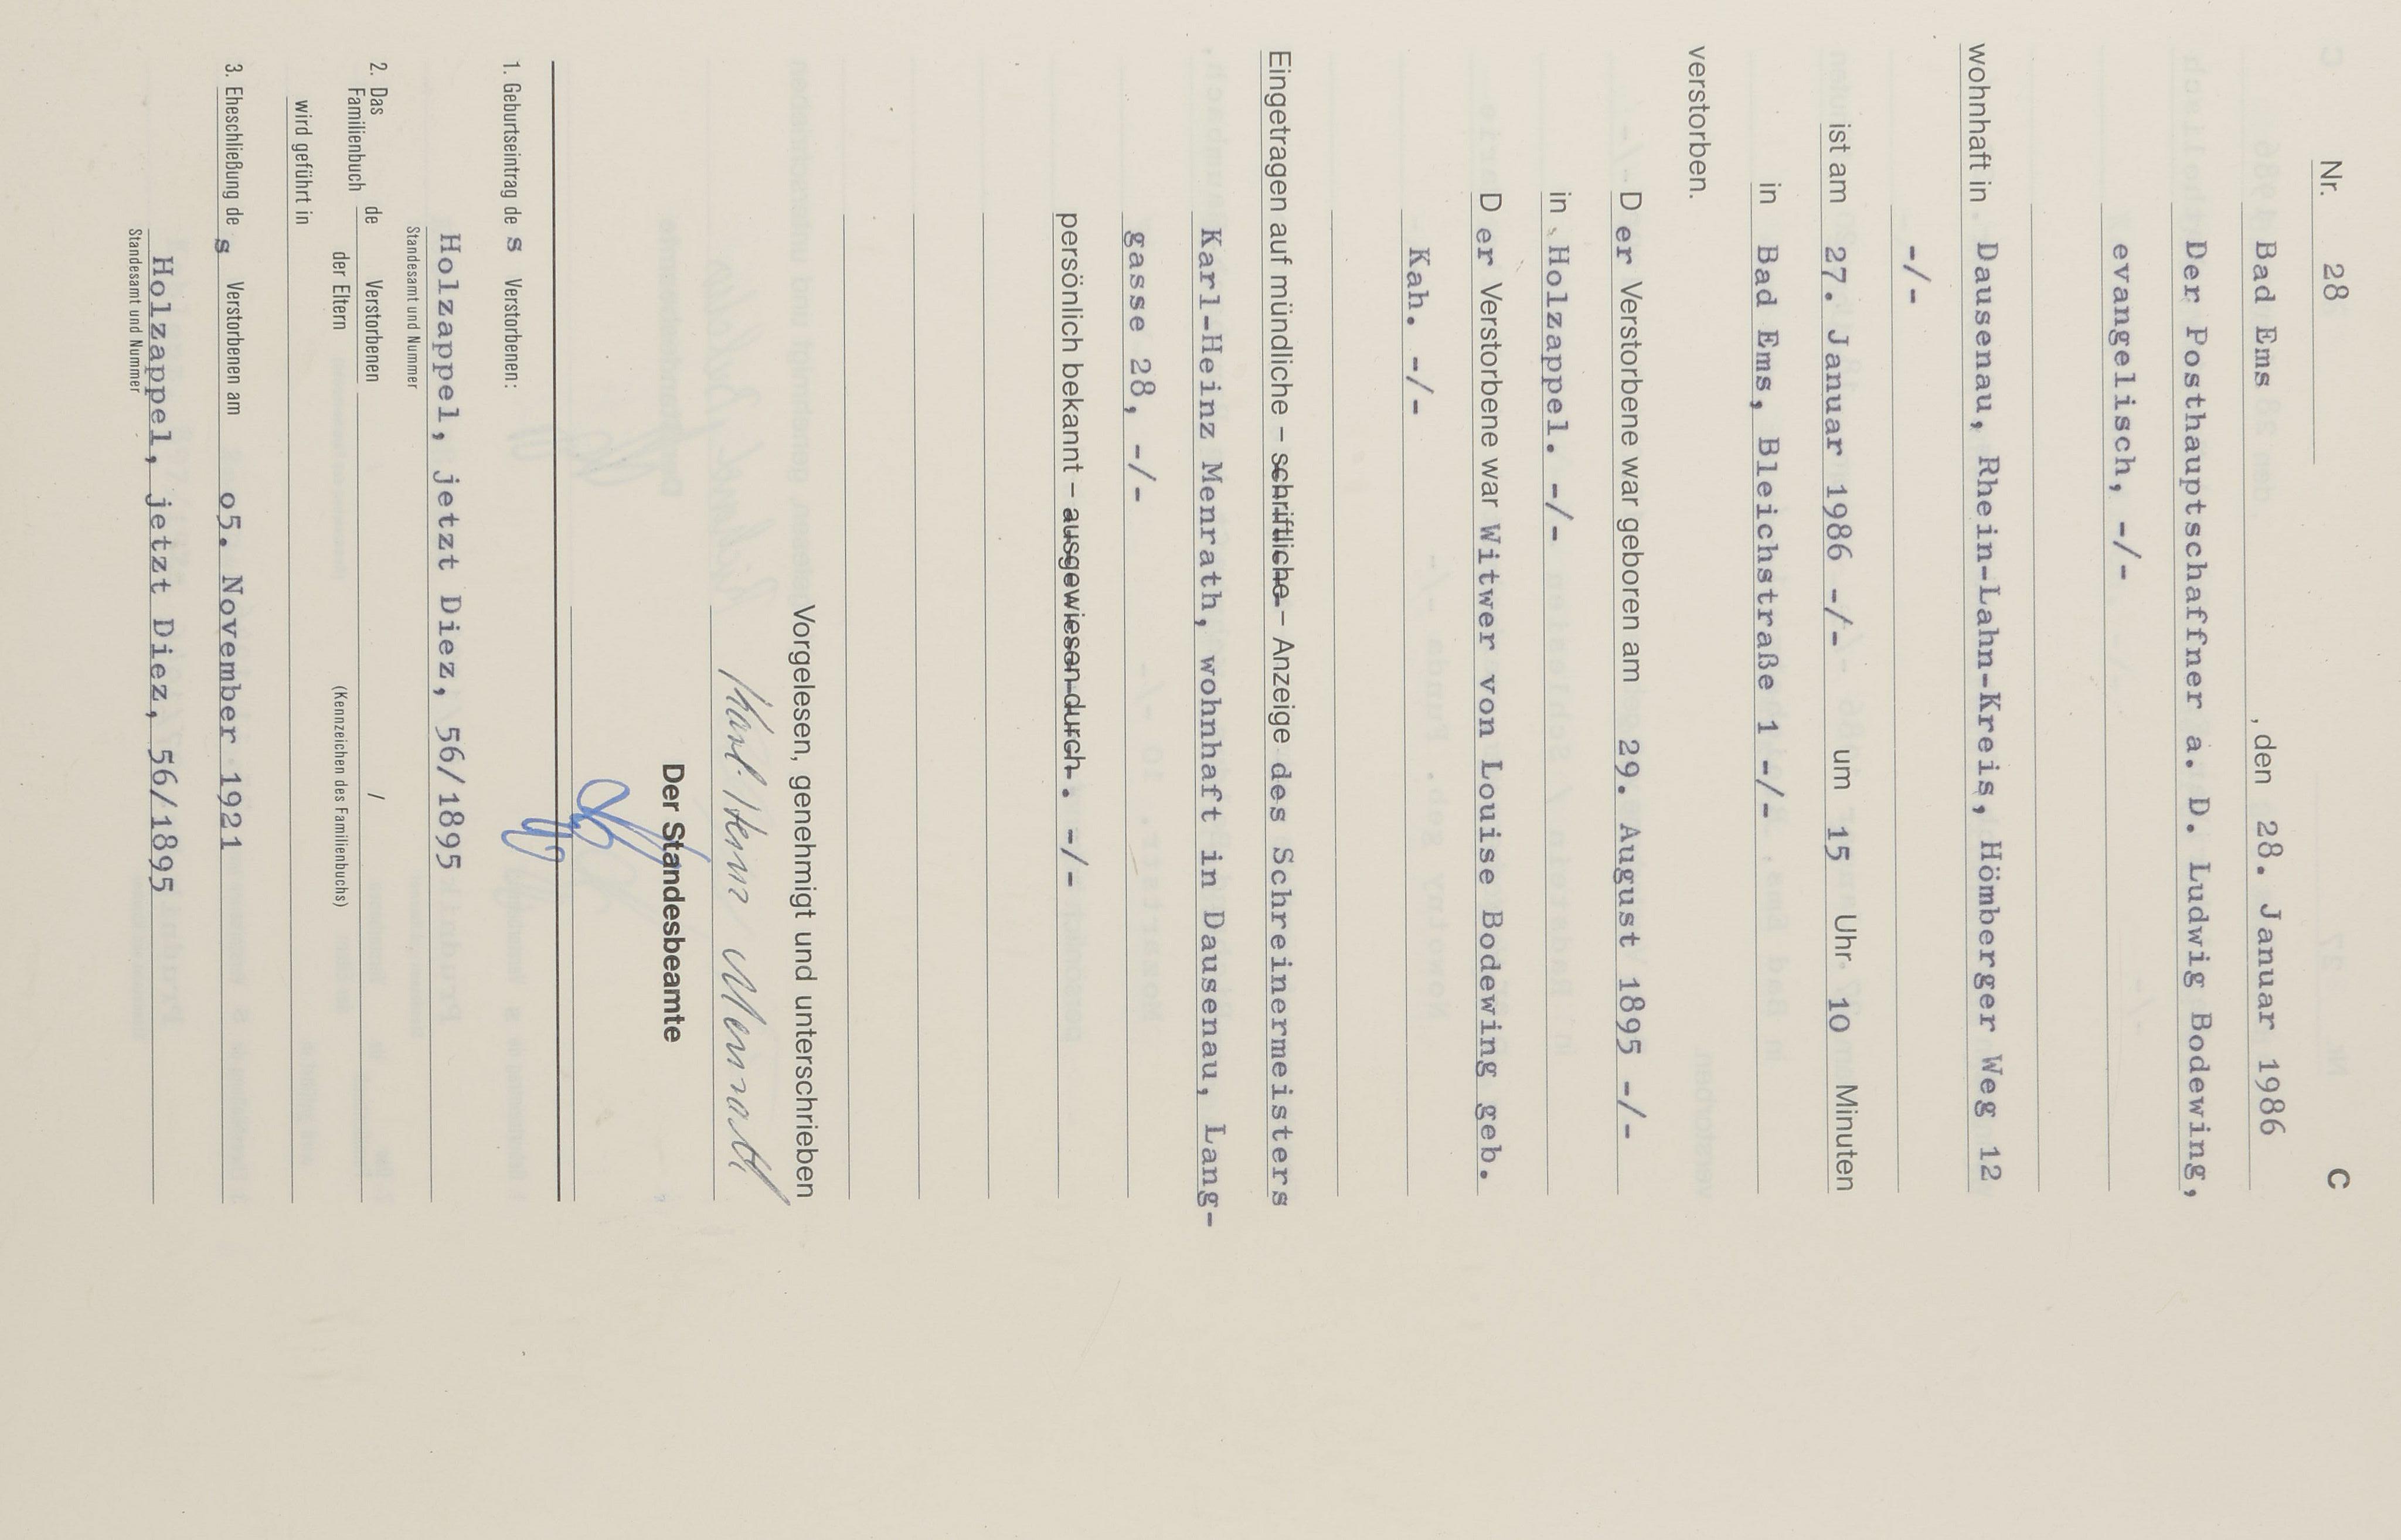 Nr. 28 C
Bad Ems , den 28. Januar 1986
Der Posthauptschaffner a. D. Ludwig Bodewing,
evangelisch, -/-
wohnhaft in Dausenau, Rhein-Lahn-Kreis, Hömberger Weg 12
-/-
ist am 27. Januar 1986 -/- um 15 Uhr 10 Minuten
in Bad Ems, Bleichstraße 1 -/-
verstorben.
D er Verstorbene war geboren am 29. August 1895 -/-
in Holzappel. -/-
D er Verstorbene war Witwer von Louise Bodewing geb.
Kah. -/-
Eingetragen auf mündliche – schriftliche – Anzeige des Schreinermeisters
Karl-Heinz Menrath, wohnhaft in Dausenau, Lang-
gasse 28, -/-
persönlich bekannt – ausgewiesen durch. -/-
Vorgelesen, genehmigt und unterschrieben
Karl-Heinz Menrath
Der Standesbeamte
1. Geburtseintrag de s Verstorbenen:
Holzappel, jetzt Diez, 56/1895
Standesamt und Nummer
2. Das Familienbuch de Verstorbenen /
der Eltern (Kennzeichen des Familienbuchs)
wird geführt in
3. Eheschließung de s Verstorbenen am o5. November 1921
Holzappel, jetzt Diez, 56/1895
Standesamt und Nummer